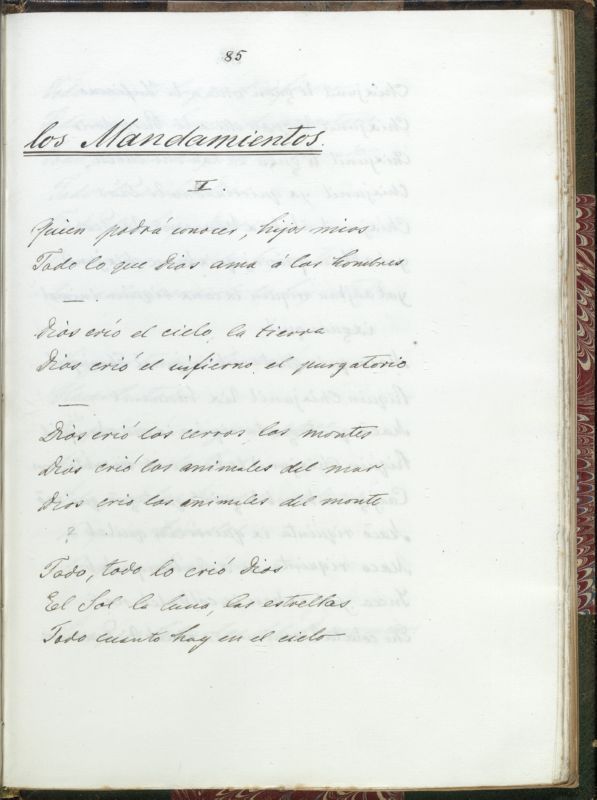 85
los Mandamientos.
V.
Quien podrá conocer, hijos mios
Todo lo que Dios ama á los hombres
Dios crio el cielo, la tierra
Dios crió el infierno, el purgatorio
Dios crió los cerros, los montes
Dios crió los animales del mar
Dios crio los animales del monte
?
Todo, todo lo crió Dios
El Sol la luna, las estrellas
Todo cuanto hay en el cielo